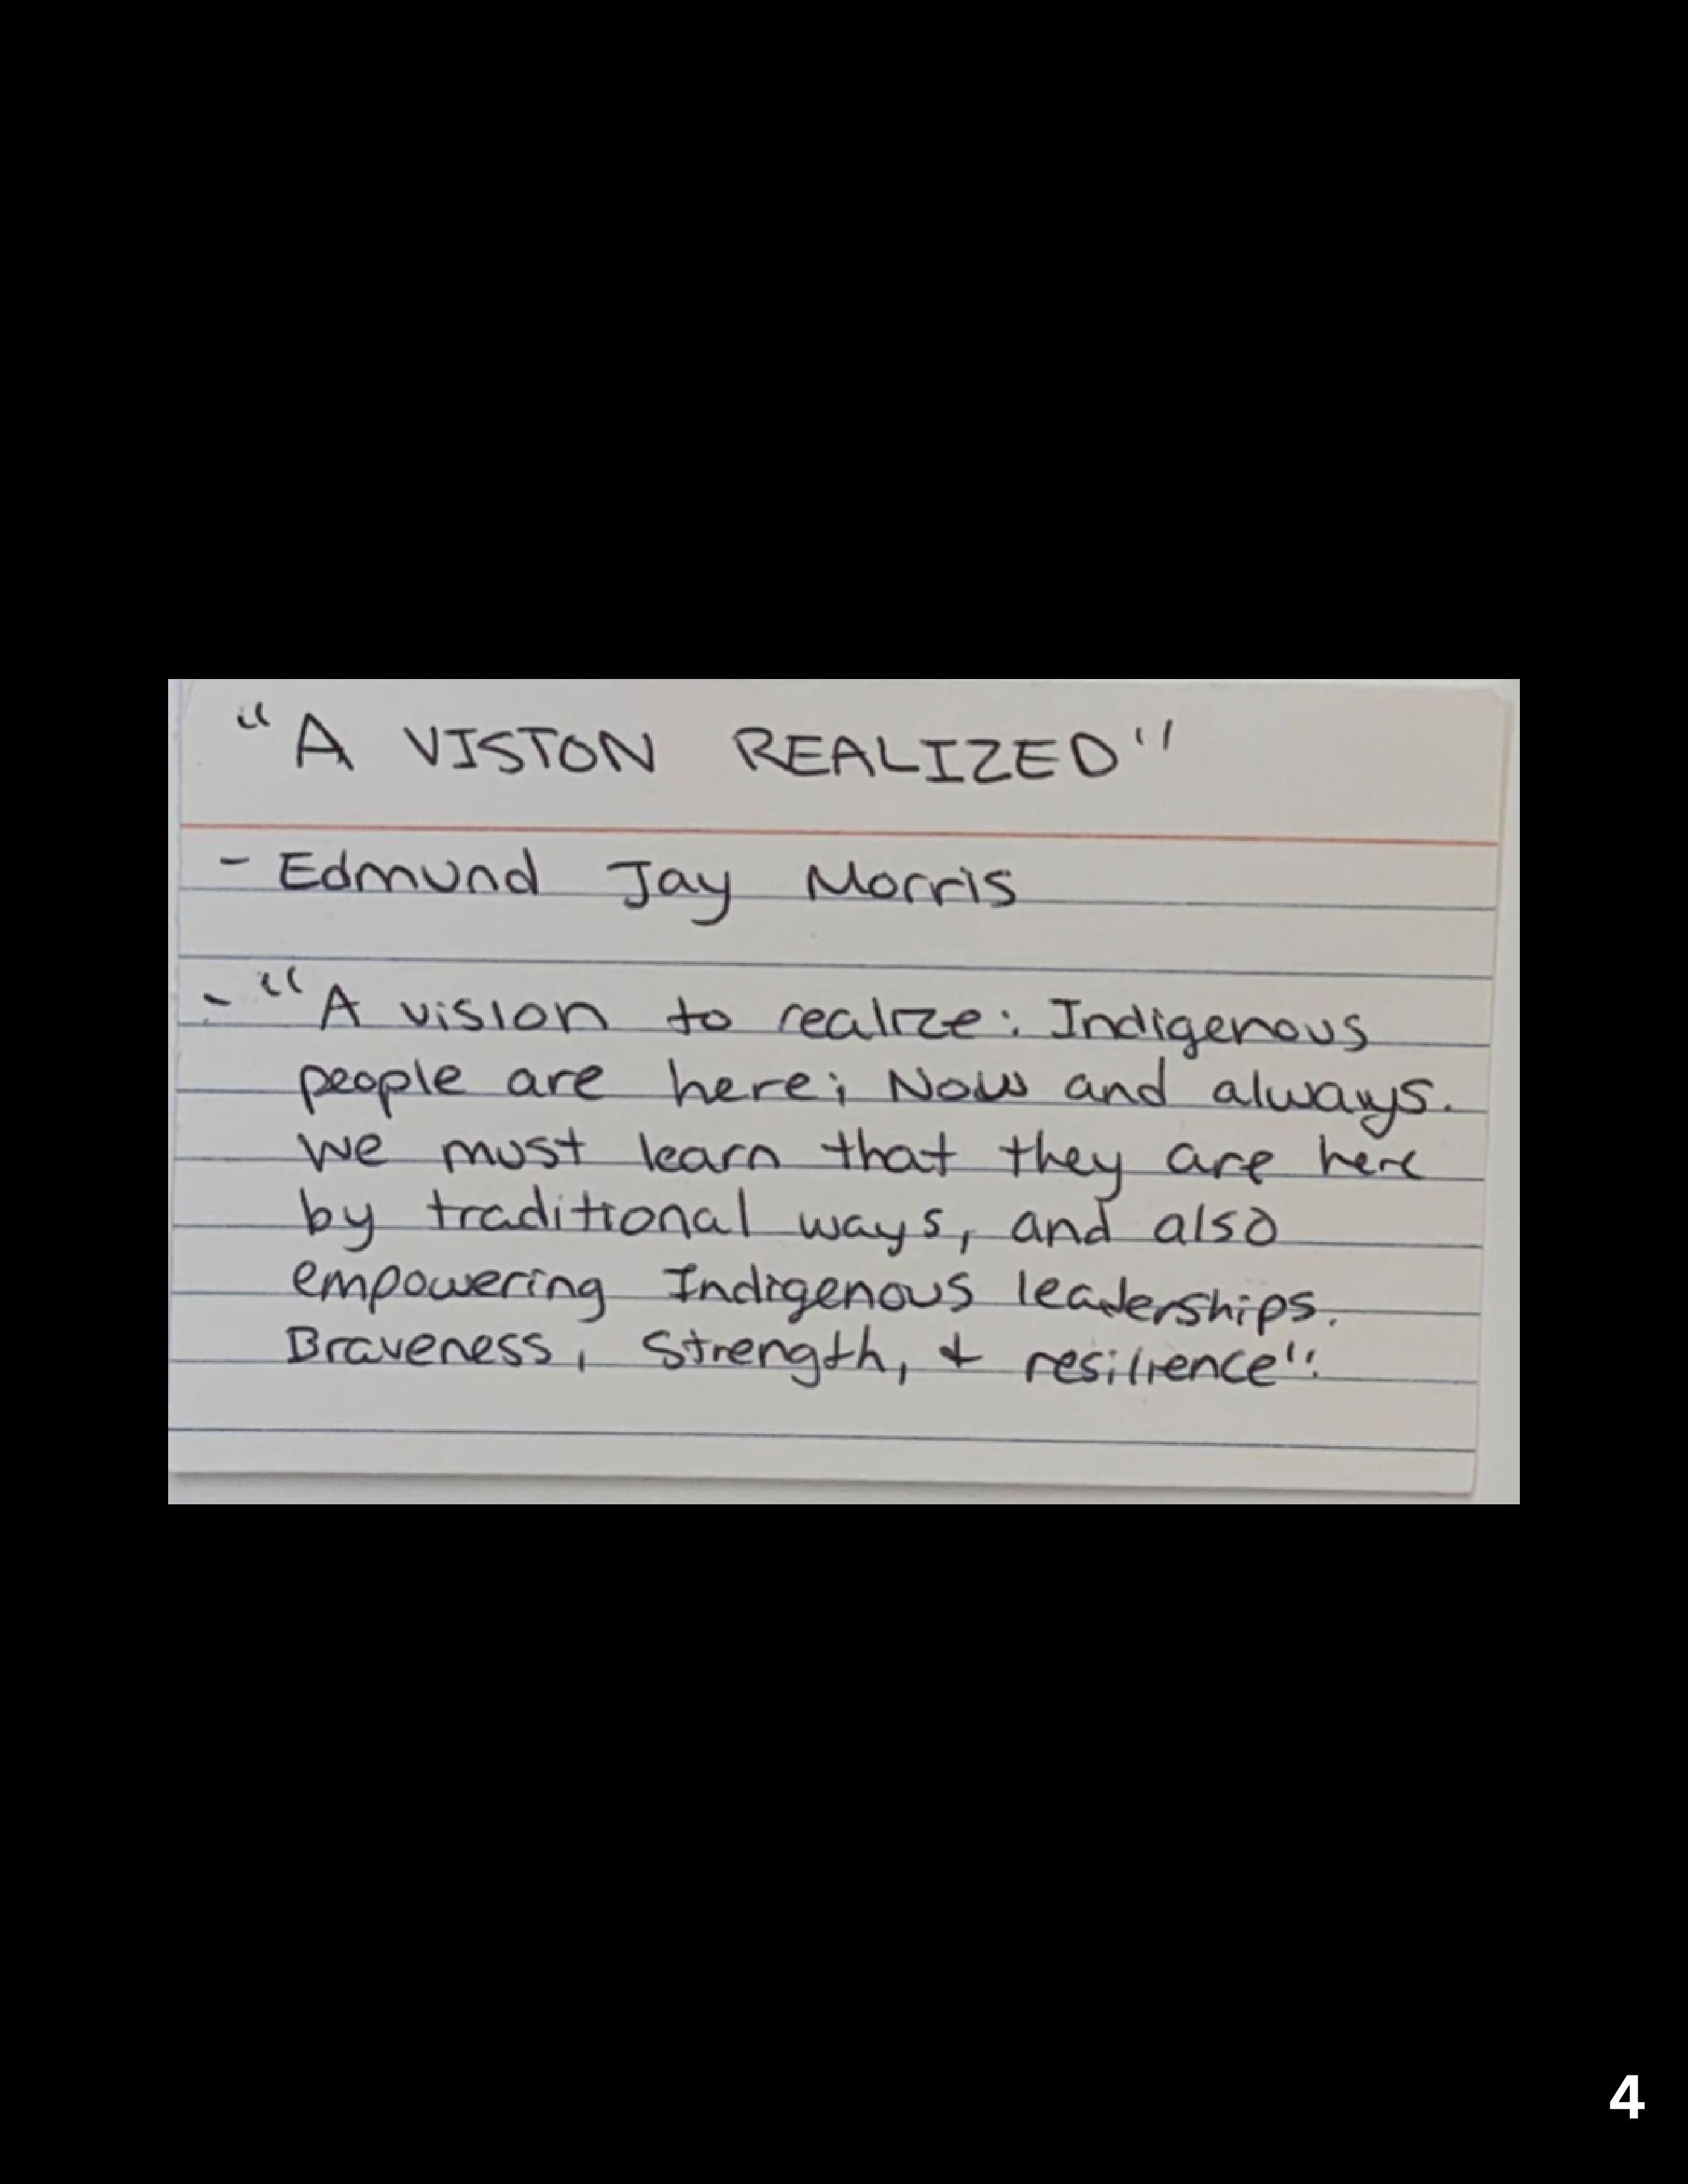 "A VISION REALIZED"
- Edmund Jay Morris
- "A vision to realize: Indigenous
people are here; Now and always.
We must learn that they are here
by traditional ways, and also
empowering Indigenous leaderships.
Braveness, Strength, & resilience".
4